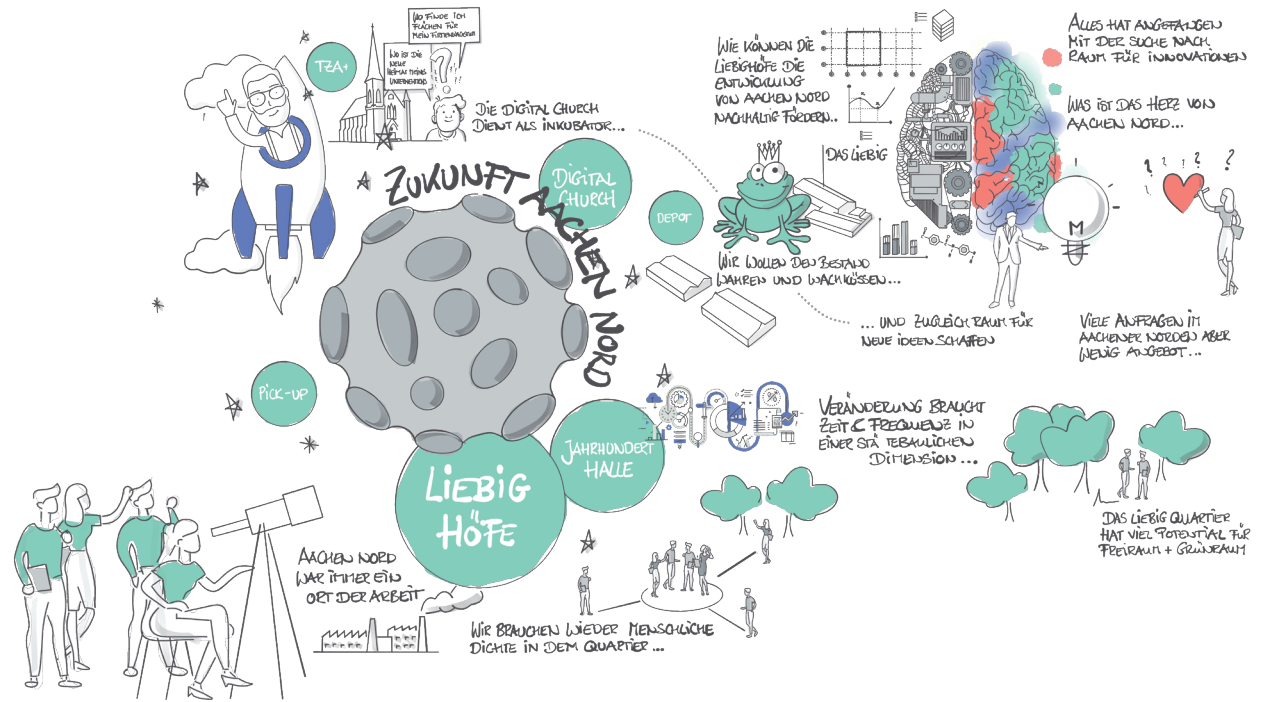 WO FINDE ICH
FLÄCHEN FÜR
MEIN FIRMENWAGEN
WO IST DIE
NEUE
HEIMAT MEINS
UNTERNEHMENS
TZA+
DIE DIGITAL CHURCH
DIENT ALS INKUBATOR...
ZUKUNFT AACHEN NORD
DIGITAL
CHURCH
DEPOT
PICK-UP
LIEBIG
HÖFE
JAHRHUNDERT
HALLE
WIE KÖNNEN DIE
LIEBIGHÖFE DIE
ENTWICKLUNG
VON AACHEN NORD
NACHHALTIG FÖRDERN..
DAS LIEBIG
WIR WOLLEN DEN BESTAND
WAHREN UND WACHKÜSSEN...
... UND ZUGLEICH RAUM FÜR
NEUE IDEEN SCHAFFEN
ALLES HAT ANGEFANGEN
MIT DER SUCHE NACH
RAUM FÜR INNOVATIONEN
WAS IST DAS HERZ VON
AACHEN NORD...
VIELE ANFRAGEN IM
AACHENER NORDEN ABER
WENIG ANGEBOT...
VERÄNDERUNG BRAUCHT
ZEIT & FREQUENZ IN
EINER STÄ TEBAULICHEN
DIMENSION...
DAS LIEBIG QUARTIER
HAT VIEL POTENTIAL FÜR
FREIRAUM + GRÜNRAUM
AACHEN NORD
WAR IMMER EIN
ORT DER ARBEIT
WIR BRAUCHEN WIEDER MENSCHLICHE
DICHTE IN DEM QUARTIER...